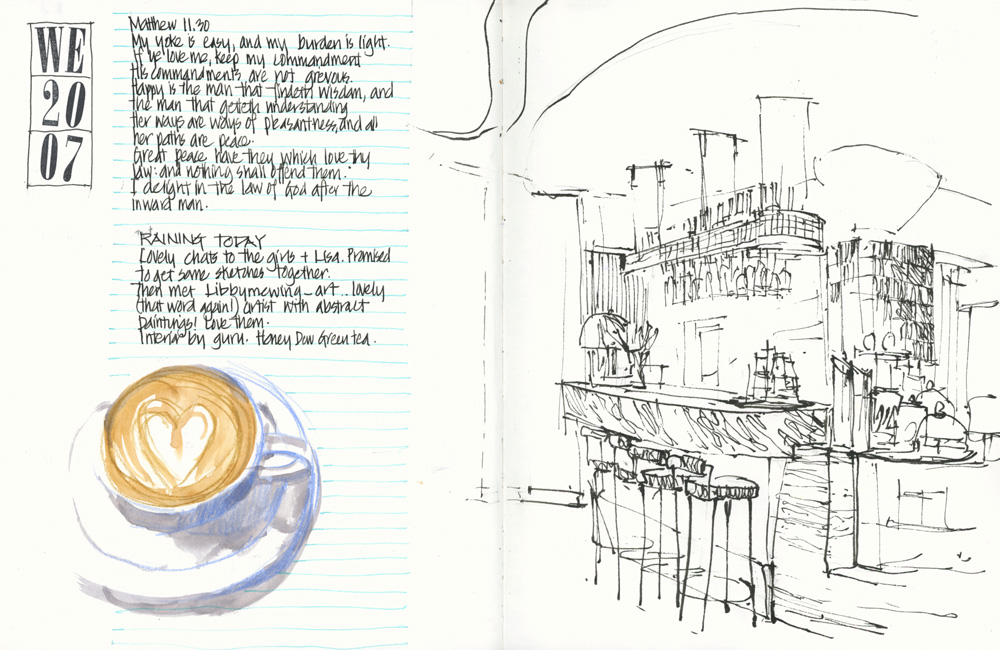 WE
20
07
Matthew 11.30
My yoke is easy, and my burden is light.
If ye love me, keep my commandment
His commandments are not grevous.
Happy is the man that findeth wisdom, and
the man that getteth understanding
Her ways are ways of pleasantness, and all
her paths are peace.
Great peace have they which love thy
law: and nothing shall offend them.
I delight in the law of God after the
inward man.
RAINING TODAY
Lovely chats to the girls + Lisa. Promised
to get some sketches together.
Then met Libbymewing-art... lovely
(that word again!) Artist with abstract
paintings! Love them.
Interior by guru. Honey Dew Green tea.